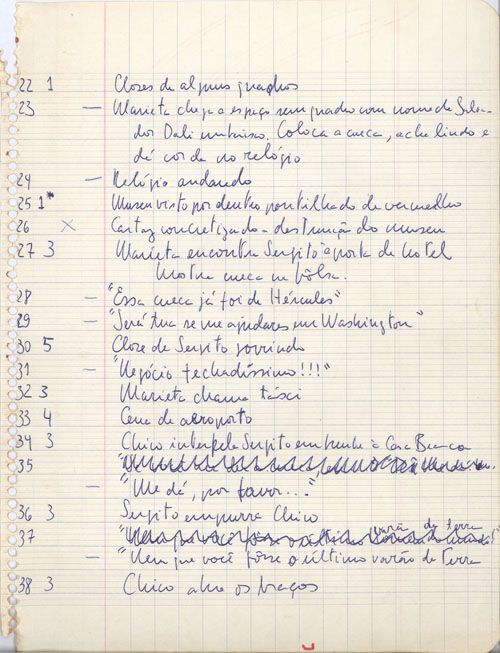 22 1 Closes de alguns quadros
23 — Marieta chega a espaço sem quadro com nome de Salva-
dor Dali embaixo. Coloca a cueca, acha lindo e
dá corda no relógio
24 — Relógio andando
25 1* Museu visto por dentro pontilhado de vermelho
26 × Cartaz concretizado - destruição do museu
27 3 Marieta encontra Serpito à porta do hotel
Mostra cueca na bôlsa.
28 — "Essa cueca já foi de Hércules"
29 — "Será tua se me ajudares em Washington"
30 5 Close de Serpito sorrindo
31 — "Negócio fechadíssimo!!!"
32 3 Marieta chama táxi
33 4 Cena de aeroporto
34 3 Chico interpela Serpito em frente à Casa Branca
35
— "Me dá, por favor..."
36 3 Serpito empurra Chico
37 varão da terra
— "Nem que você fôsse o último varão da Terra
38 3 Chico abre os braços